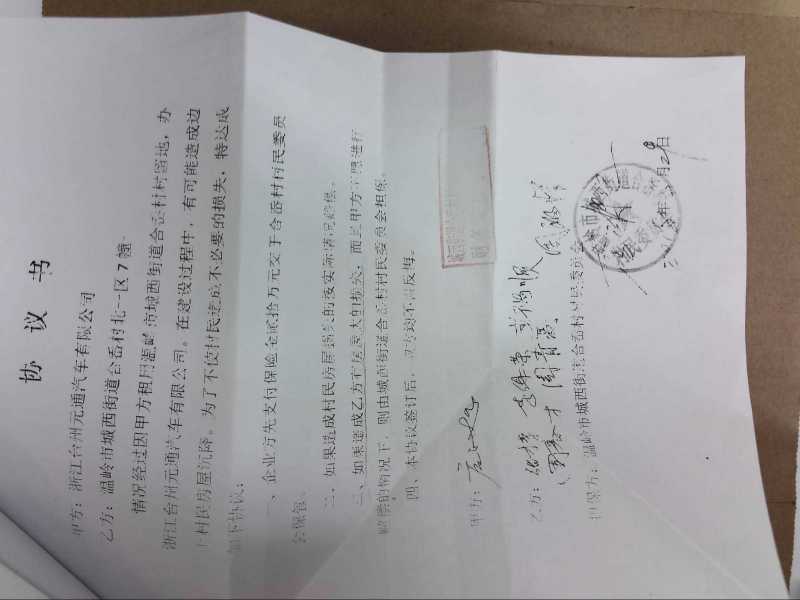 协 议 书
甲方：浙江台州元通汽车有限公司
乙方：温岭市城西街道合岙村北一区7幢
情况经过因甲方租用温岭市城西街道合岙村村留地，办
浙江台州元通汽车有限公司。在建设过程中，有可能造成边
上村民房屋沉降。为了不使村民造成不必要的损失，特达成
如下协议：
一、企业方先支付保险金贰拾万元交于合岙村村民委员
会保管。
二、如果造成村民房屋损失的按实际情况赔偿。
三、如果造成乙方有居家大的损失，而且甲方不愿进行
赔偿的情况下，则由城西街道合岙村村民委员会担保。
四、本协议签订后，双方均不得反悔。
甲方：
乙方：
担保方：温岭市城西街道合岙村村民委员会
年 月29日